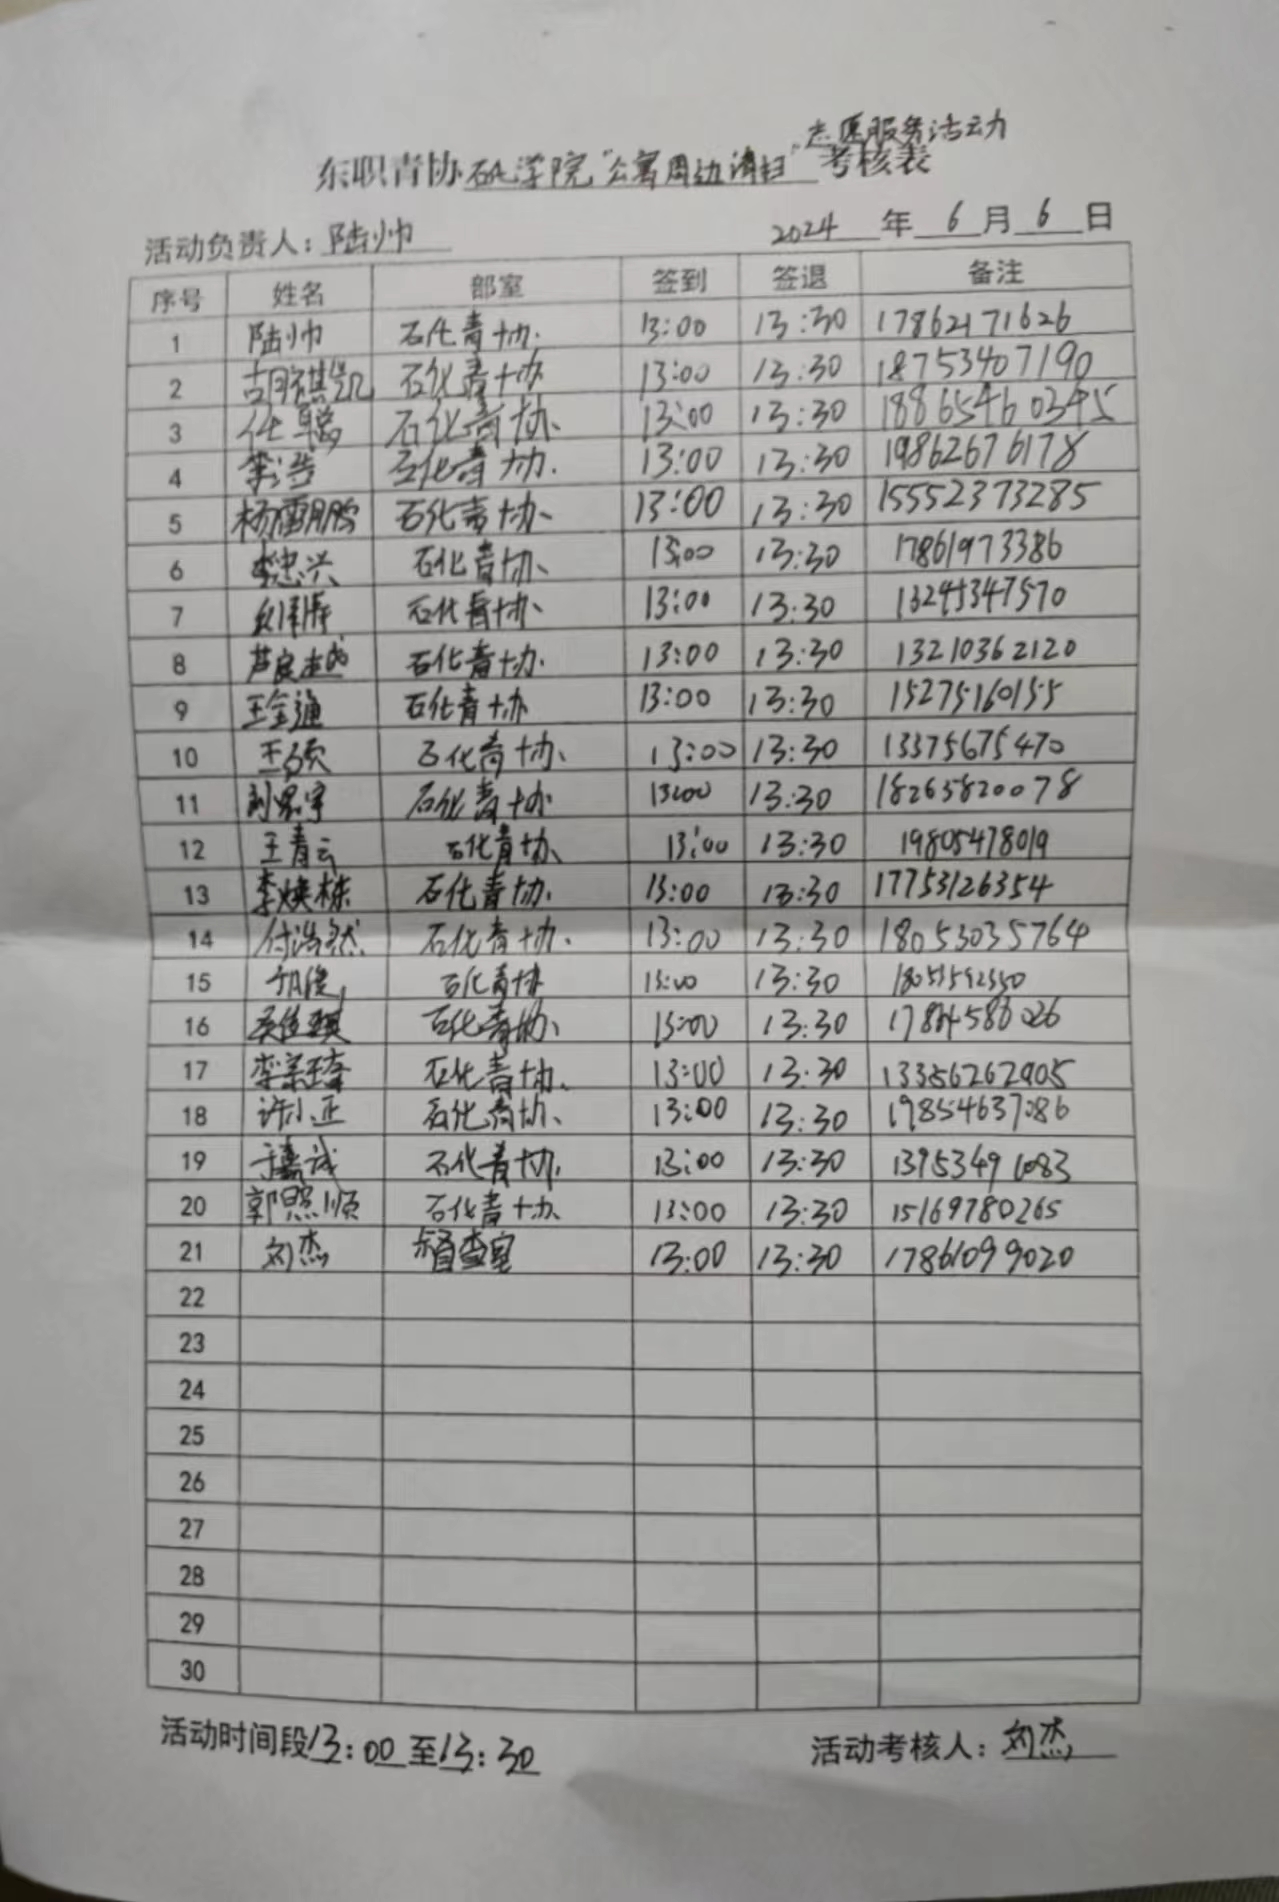 志愿服务活动
东职青协石化学院“公寓周边清扫”考核表
活动负责人：陆帅 2024年6月6日
序号 姓名 部室 签到 签退 备注
1 陆帅 石化青协 13:00 13:30 17862171626
2 胡祺凯 石化青协 13:00 13:30 18753407190
3 任聪 石化青协 13:00 13:30 18865460345
4 李浩 石化青协 13:00 13:30 19862676178
5 杨儒鹏 石化青协 13:00 13:30 15552373285
6 李忠兴 石化青协 13:00 13:30 17861973386
7 石化青协 13:00 13:30 13245347570
8 芦良 石化青协 13:00 13:30 13210362120
9 王金通 石化青协 13:00 13:30 15275160155
10 王硕 石化青协 13:00 13:30 13375675470
11 石化青协 13:00 13:30 18265820078
12 王青云 石化青协 13:00 13:30 19805478019
13 李焕栋 石化青协 13:00 13:30 17753126354
14 付浩然 石化青协 13:00 13:30 18053035764
15 石化青协 13:00 13:30
16 石化青协 13:00 13:30
17 李宗琦 石化青协 13:00 13:30 13356262905
18 许小正 石化青协 13:00 13:30 19854637086
19 于嘉诚 石化青协 13:00 13:30 13953491083
20 郭照顺 石化青协 13:00 13:30 15169780265
21 刘杰 督查室 13:00 13:30 17861099020
22
23
24
25
26
27
28
29
30
活动时间段13:00至13:30 活动考核人：刘杰